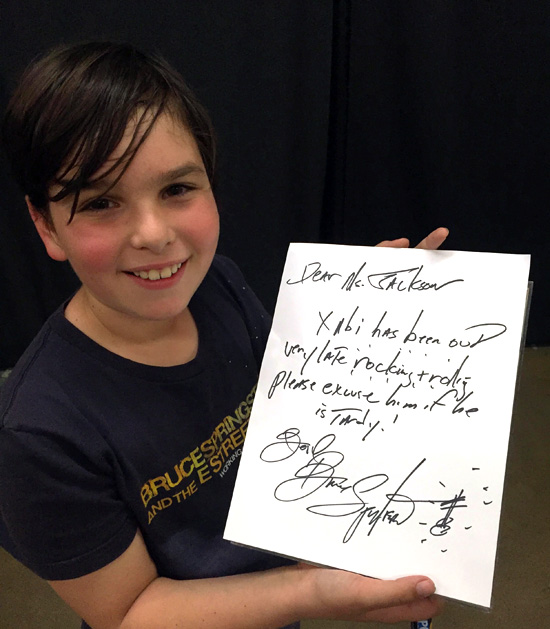 Dear Ms. Jackson
Xabi has been out
very late rocking & rolling
please excuse him if he
is tardy!
Bruce Springsteen
BRUCE SPRINGS
AND THE E STREE
WORKING